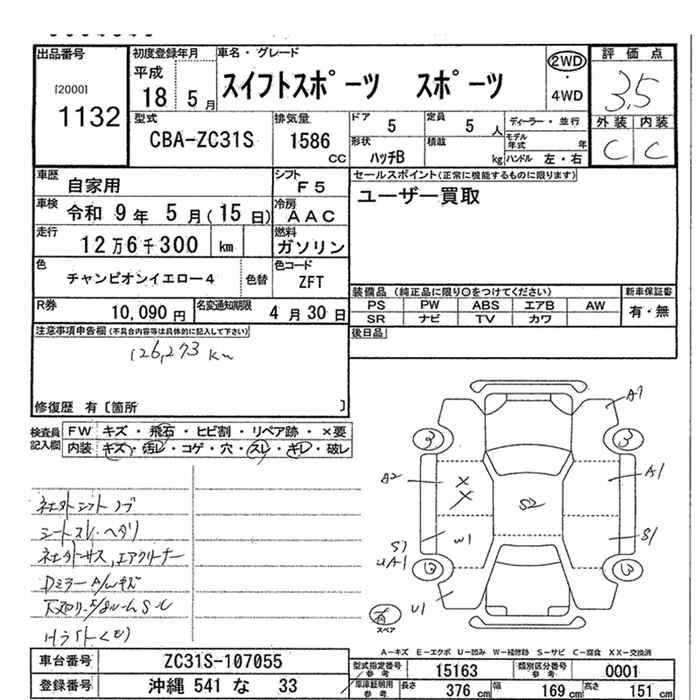 出品番号
[2000]
1132
初度登録年月
平成
18 5月
車名・グレード
スイフトスポーツ スポーツ
2WD
・
4WD
評価点
3.5
外装 内装
C C
型式
CBA-ZC31S
排気量
1586
CC
ドア 5
定員 5 人
ディーラー・並行
形状
ハッチB
積載 kg
モデル年式 年
ハンドル 左・右
車歴
自家用
シフト
F5
セールスポイント(正常に機能するものに限ります)
ユーザー買取
車検
令和 9年 5月(15日)
冷房
AAC
走行
12万6千300 km
燃料
ガソリン
色
チャンピオンイエロー4
色替
色コード
ZFT
装備品 (純正品に限り○をつけてください)
新車保証書
PS PW ABS エアB AW
SR ナビ TV カワ
有・無
R券
10,090円
名変通知期限
4月30日
後日品
注意事項申告欄(不具合内容等は具体的に記入して下さい)
126,273 km
修復歴 有〔箇所 〕
検査員記入欄
FW キズ・飛石・ヒビ割・リペア跡・×要
内装 キズ・汚レ・コゲ・穴・スレ・キレ・破レ
シートスレ・ヘタリ
A1
3 3
A2 A1
X
X
S2
W1
S1
S1
UA1
3 3
U1
U1
スペア
A-キズ E-エクボ U-凹み W-補修跡 S-サビ C-腐食 XX-交換済
車台番号
ZC31S-107055
登録番号
沖縄 541 な 33
型式指定番号/参考
15163
類別区分番号/参考
0001
車庫証明用/参考
長さ 376 cm
幅 169 cm
高さ 151 cm